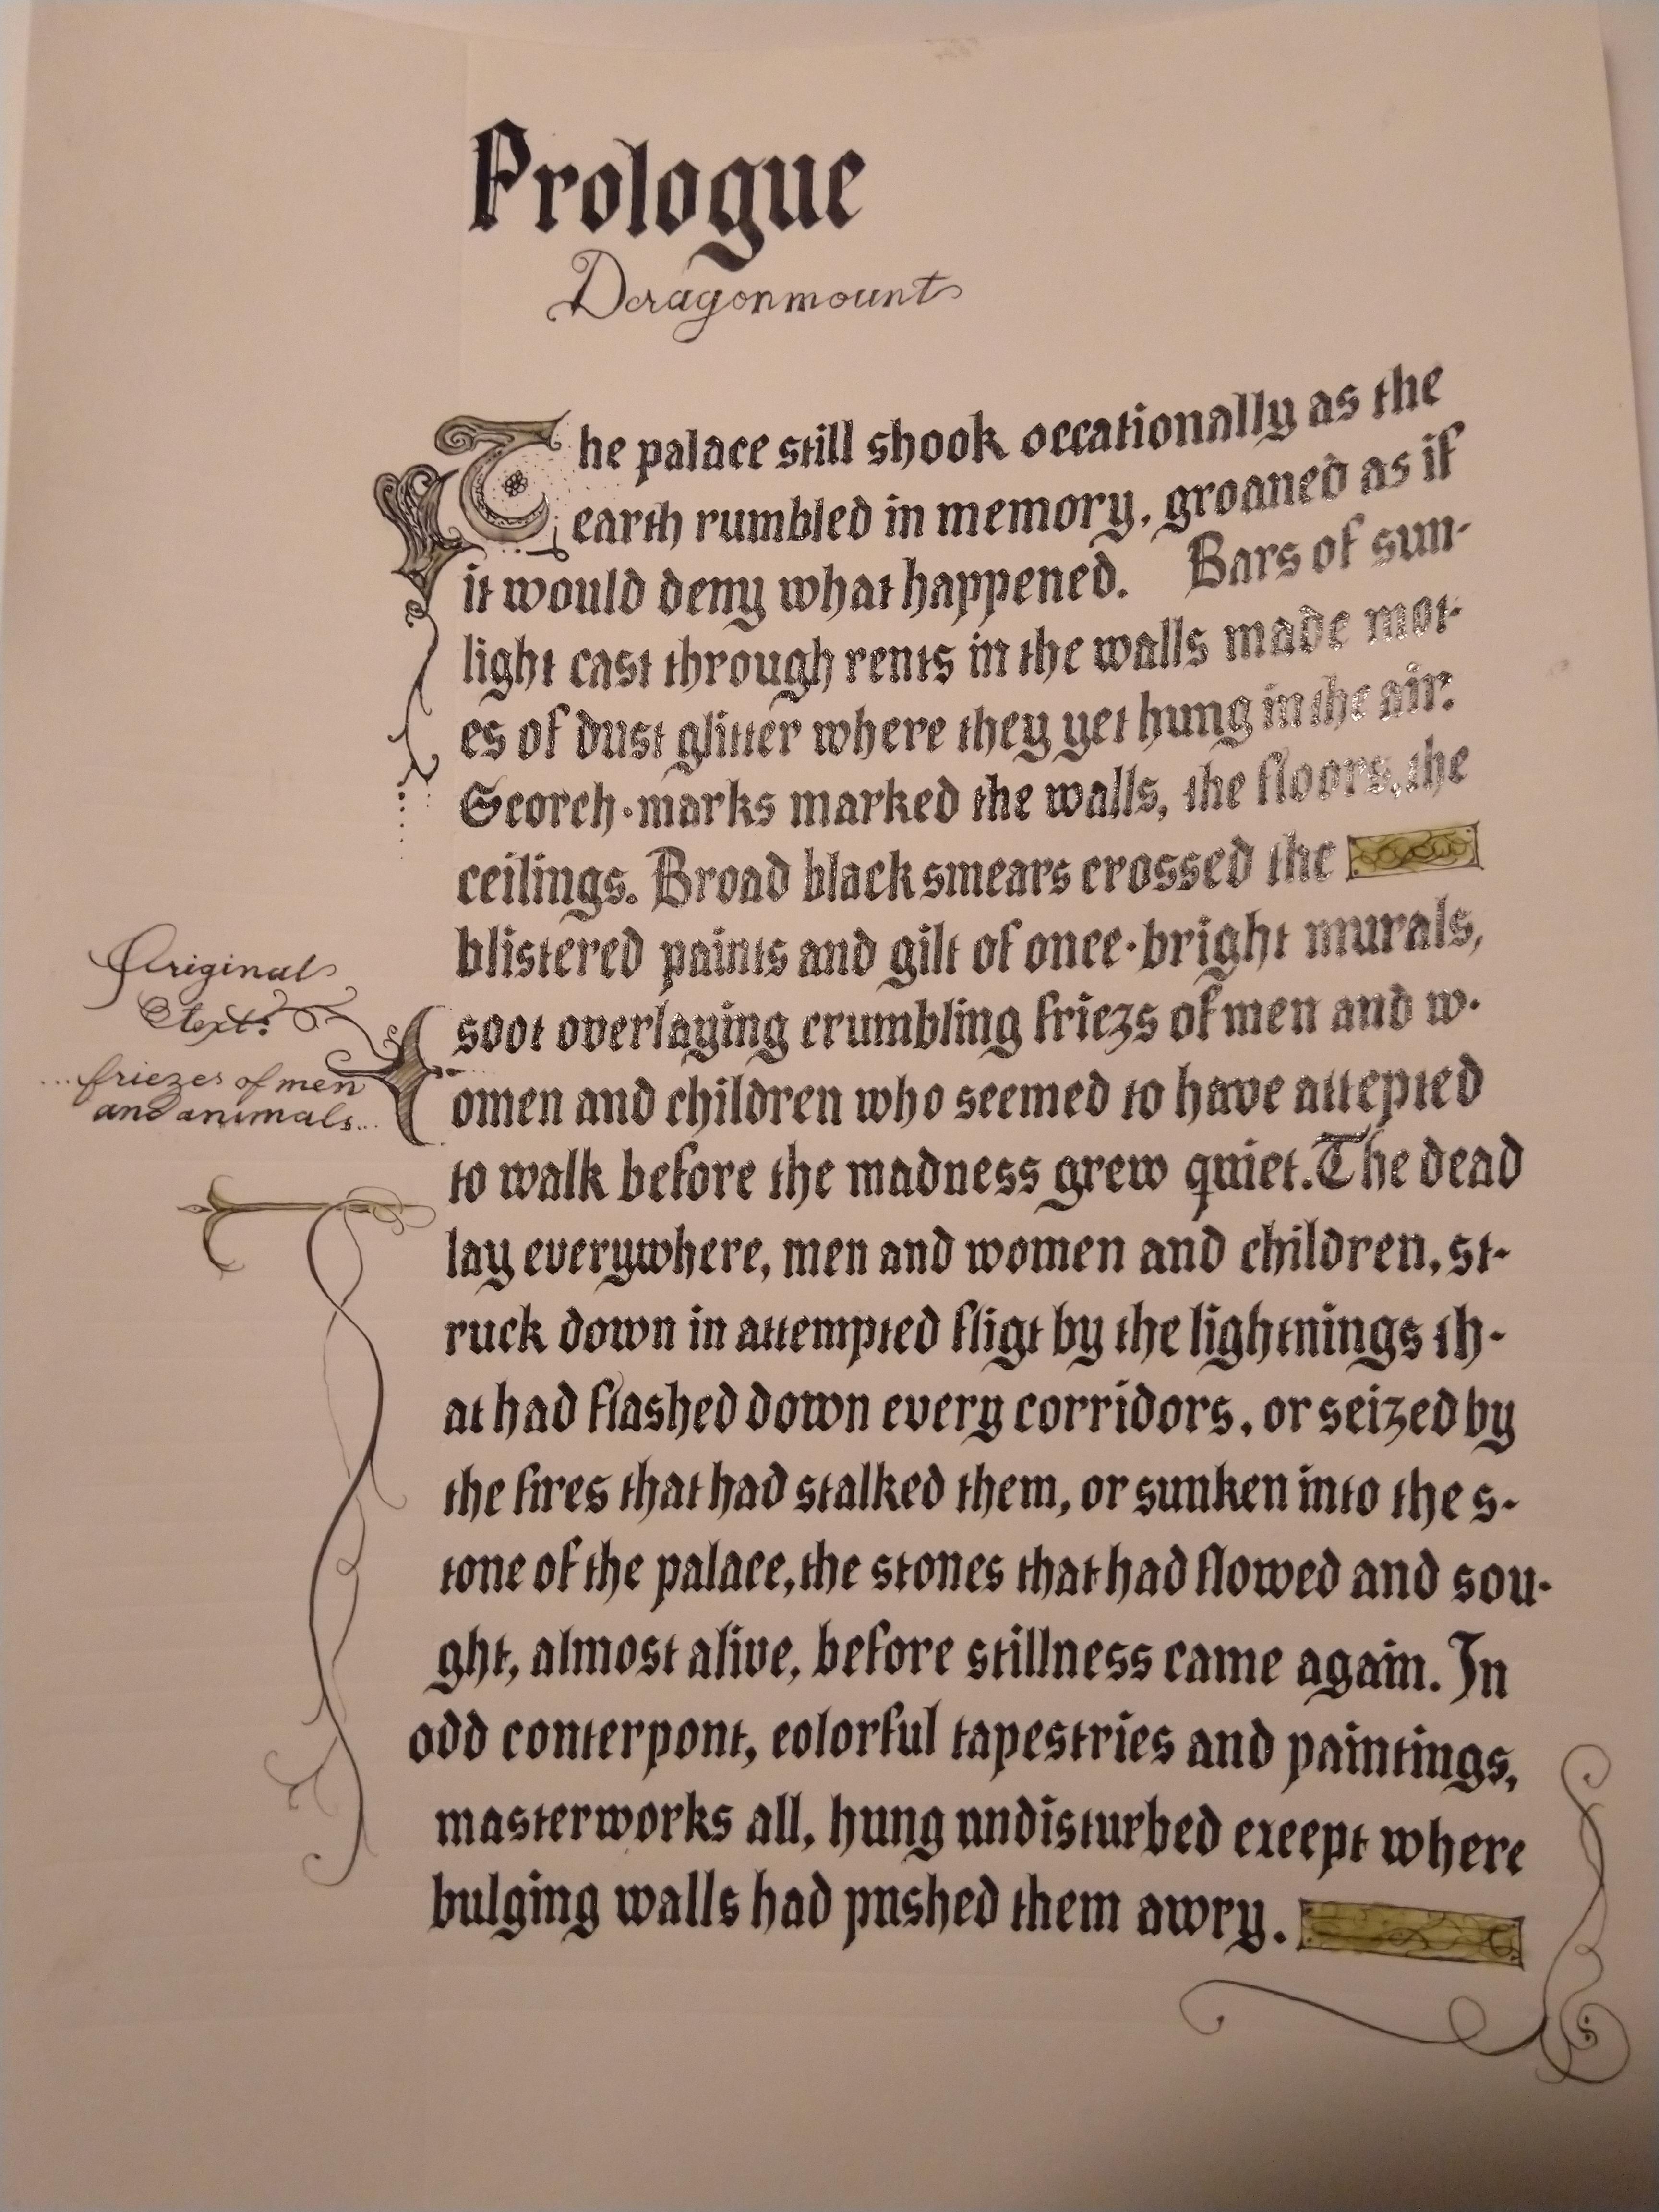 Prologue
Dragonmount
The palace still shook occationally as the
earth rumbled in memory, groaned as if
it would deny what happened. Bars of sun-
light cast through rents in the walls made mot-
es of dust glitter where they yet hung in the air.
Scorch-marks marked the walls, the floors, the
ceilings. Broad black smears crossed the
blistered paints and gilt of once-bright murals,
soot overlaying crumbling friezs of men and w-
omen and children who seemed to have attepted
to walk before the madness grew quiet. The dead
lay everywhere, men and women and children, st-
ruck down in attempted fligt by the lightnings th-
at had flashed down every corridors, or seized by
the fires that had stalked them, or sunken into the s-
tone of the palace, the stones that had flowed and sou-
ght, almost alive, before stillness came again. In
odd conterpont, colorful tapestries and paintings,
masterworks all, hung undisturbed except where
bulging walls had pushed them awry.
Original
text:
...friezes of men
and animals...